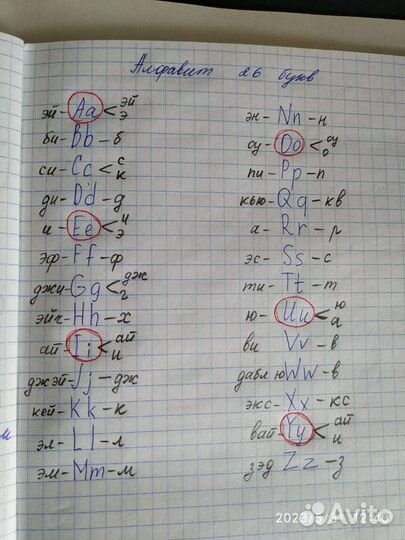 Алфавит 26 букв
эй - Aa < эй э
би - Bb - б
си - Cc < с к
ди - Dd - д
и - Ee < и э
эф - Ff - ф
джи - Gg < дж г
эйч - Hh - х
ай - Ii < ай и
джэй - Jj - дж
кей - Kk - к
эл - Ll - л
эм - Mm - м
эн - Nn - н
оу - Oo < оу о
пи - Pp - п
кью - Qq - кв
а - Rr - р
эс - Ss - с
ти - Tt - т
ю - Uu < ю а
ви Vv - в
дабл ю Ww - в
экс - Xx - кс
вай - Yy < ай и
зэд Zz - з
Avito